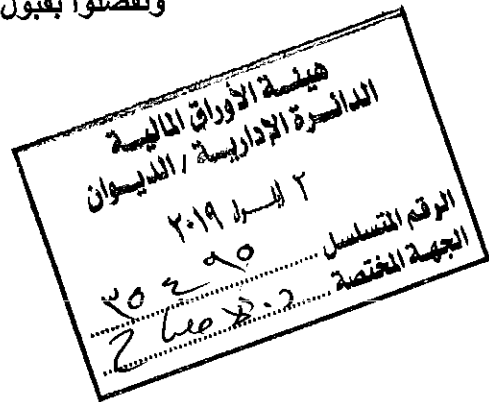 وتفضلوا بقبول
هيئة الأوراق المالية
الدائرة الإدارية / الديوان
٢ ايلول ٢٠١٩
الرقم المتسلسل ٣٥٤٩٥
الجهة المختصة